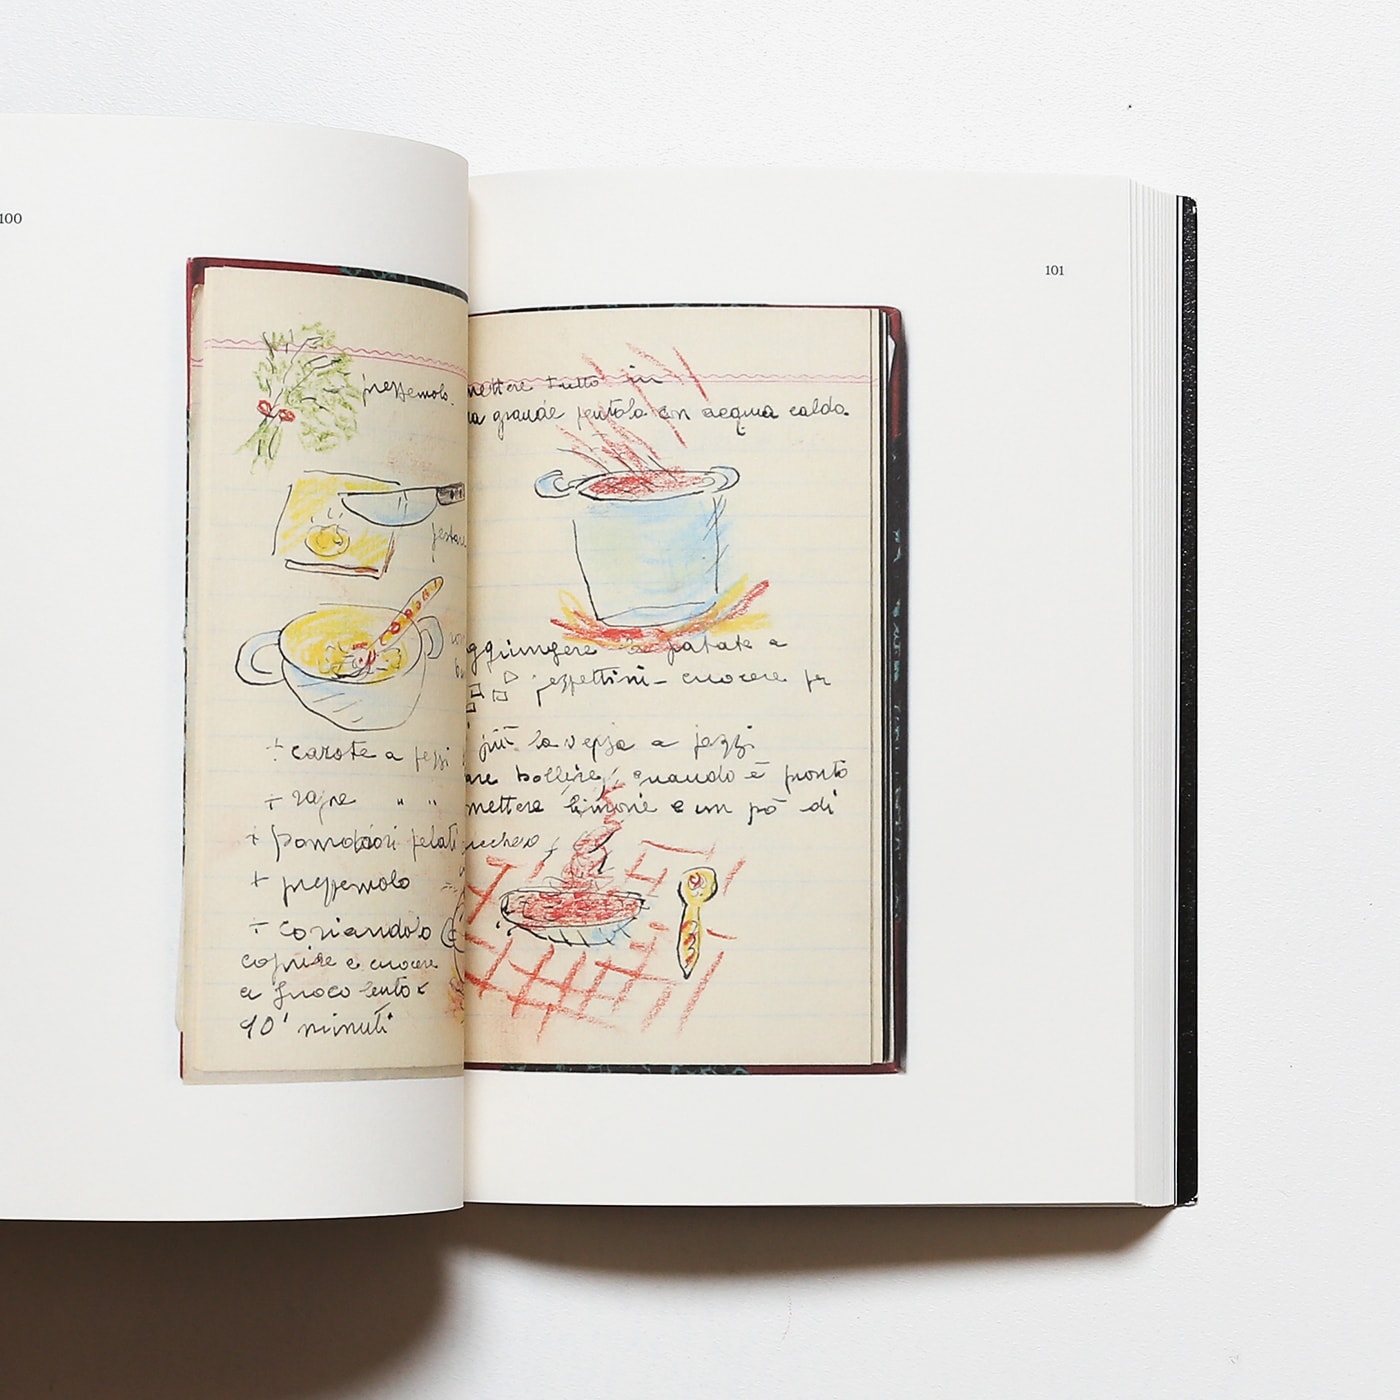 100
prezzemolo.
pestare
+ carote a pezzi
+ rape " "
+ pomodori pelati
+ prezzemolo
+ coriandolo
coprire e cuocere
a fuoco lento x
90' minuti
101
mettere tutto in
grande pentola con acqua calda.
aggiungere le patate a
pezzettini - cuocere per
più la verza a pezzi
bollire, quando è pronto
mettere limone e un pò di
zucchero